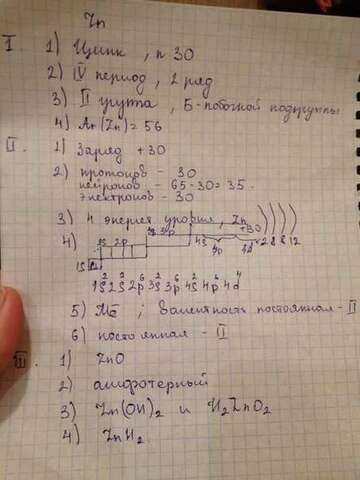 Zn
I. 1) Цинк, n 30
2) IV период, 2 ряд
3) II група, Б-побочной подгруппы
4) Ar(Zn)=56
II. 1) Заряд +30
2) протонов - 30
нейронов - 65-30=35.
электронов - 30
3) 4 энергет уровня, Zn
+30 2 8 8 12
4) 1S 2S 2p 3S 3p 4S 4p 4d
1S² 2S² 2p⁶ 3S² 3p⁶ 4S² 4p⁶ 4d⁴
5) Ме ; валентность постоянная - II
6) постоянная - II
III. 1) ZnO
2) амфотерный
3) Zn(OH)₂ и H₂ZnO₂
4) ZnH₂